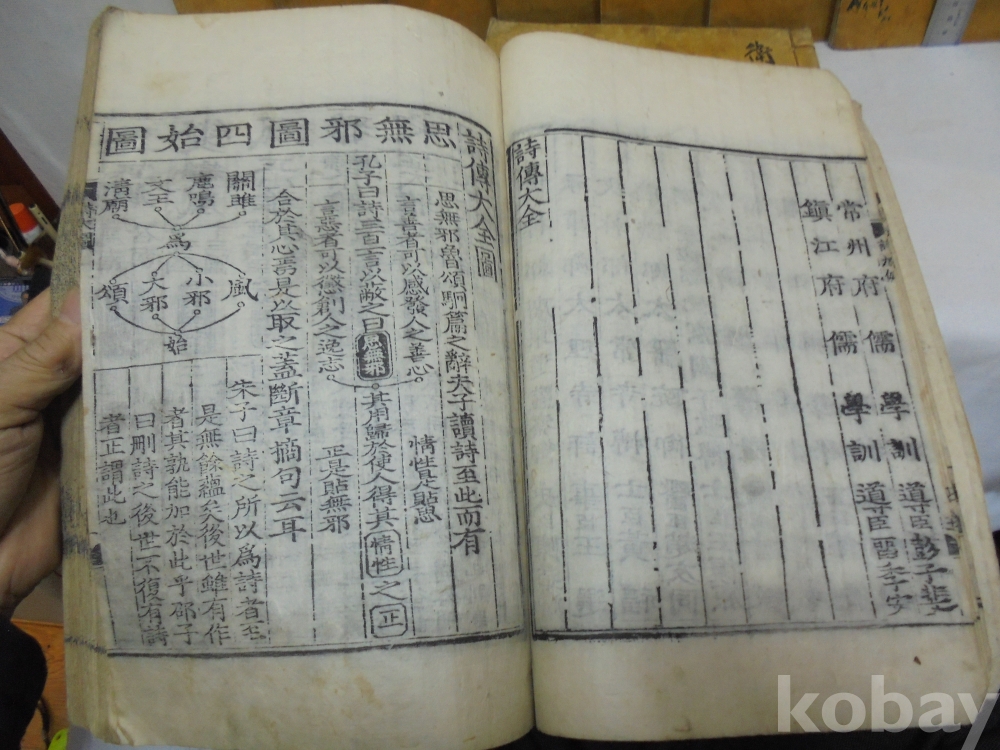 常州府儒學訓導臣彭子斐
鎮江府儒學訓導臣留季安
詩傳大全
詩傳大全圖
思無邪圖
四始圖
思無邪魯頌駉篇之辭夫子讀詩至此而有
合於其心焉是以取之蓋斷章摘句云耳
言善者可以感發人之善心
情性是貼思
孔子曰詩三百一言以蔽之曰思無邪
其用歸於使人得其情性之正
言惡者可以懲創人之逸志
正是貼無邪
關雎
鹿鳴
文王
清廟
為
風
小邪
大邪
頌
始
朱子曰詩之所以為詩者至
是無餘蘊矣後世雖有作
者其孰能加於此乎邵子
曰刪詩之後世不復有詩
者正謂此也
衛
kobay